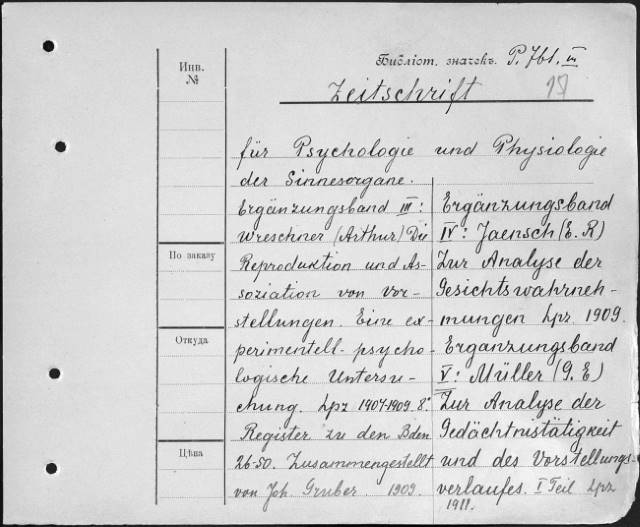 Инв.
№
По заказу
Откуда
Цѣна
Библіот. значекъ. P. 761. III
Zeitschrift
für Psychologie und Physiologie
der Sinnesorgane.
Ergänzungsband III:
Wreschner (Arthur) Die
Reproduktion und As-
soziation von Vor-
stellungen. Eine ex-
perimentell-psycho-
logische Untersu-
chung. Lpz 1907-1909. 8°
Register zu den Bden
26-50. Zusammengestellt
von Joh Gruber. 1909.
Ergänzungsband
IV: Jaensch (E. R)
Zur Analyse der
Gesichtswahrneh-
mungen Lpz 1909.
Ergänzungsband
V: Müller (G. E)
Zur Analyse der
Gedächtnistätigkeit
und des Vorstellungs-
verlaufes. I Teil Lpz
1911.